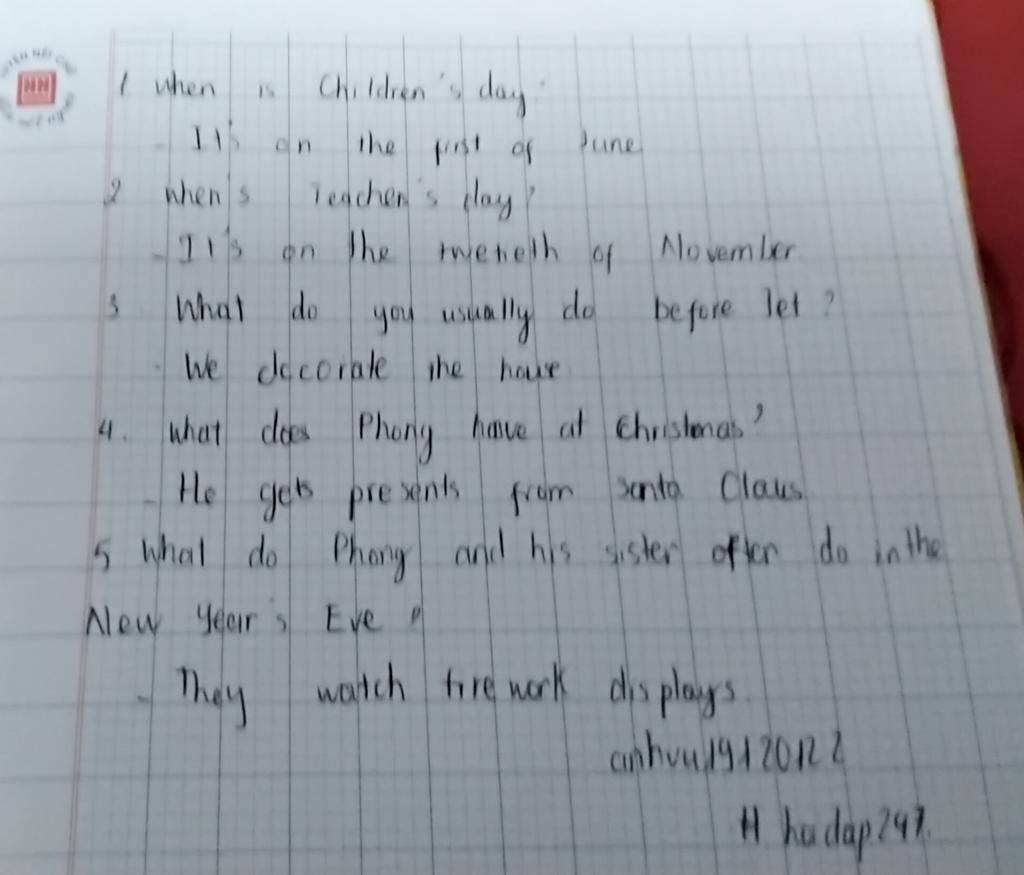 NN
1 When is Children's day
- It's on the first of June
2 When's Teacher's day?
- It's on the twenieth of November
3 What do you usually do before Tet?
- We decorate the house
4. What does Phong have at Christmas?
- He gets presents from Santa Claus
5 What do Phong and his sister often do in the
New Year's Eve?
- They watch firework displays.
anhvu19120122
H hoclap247.